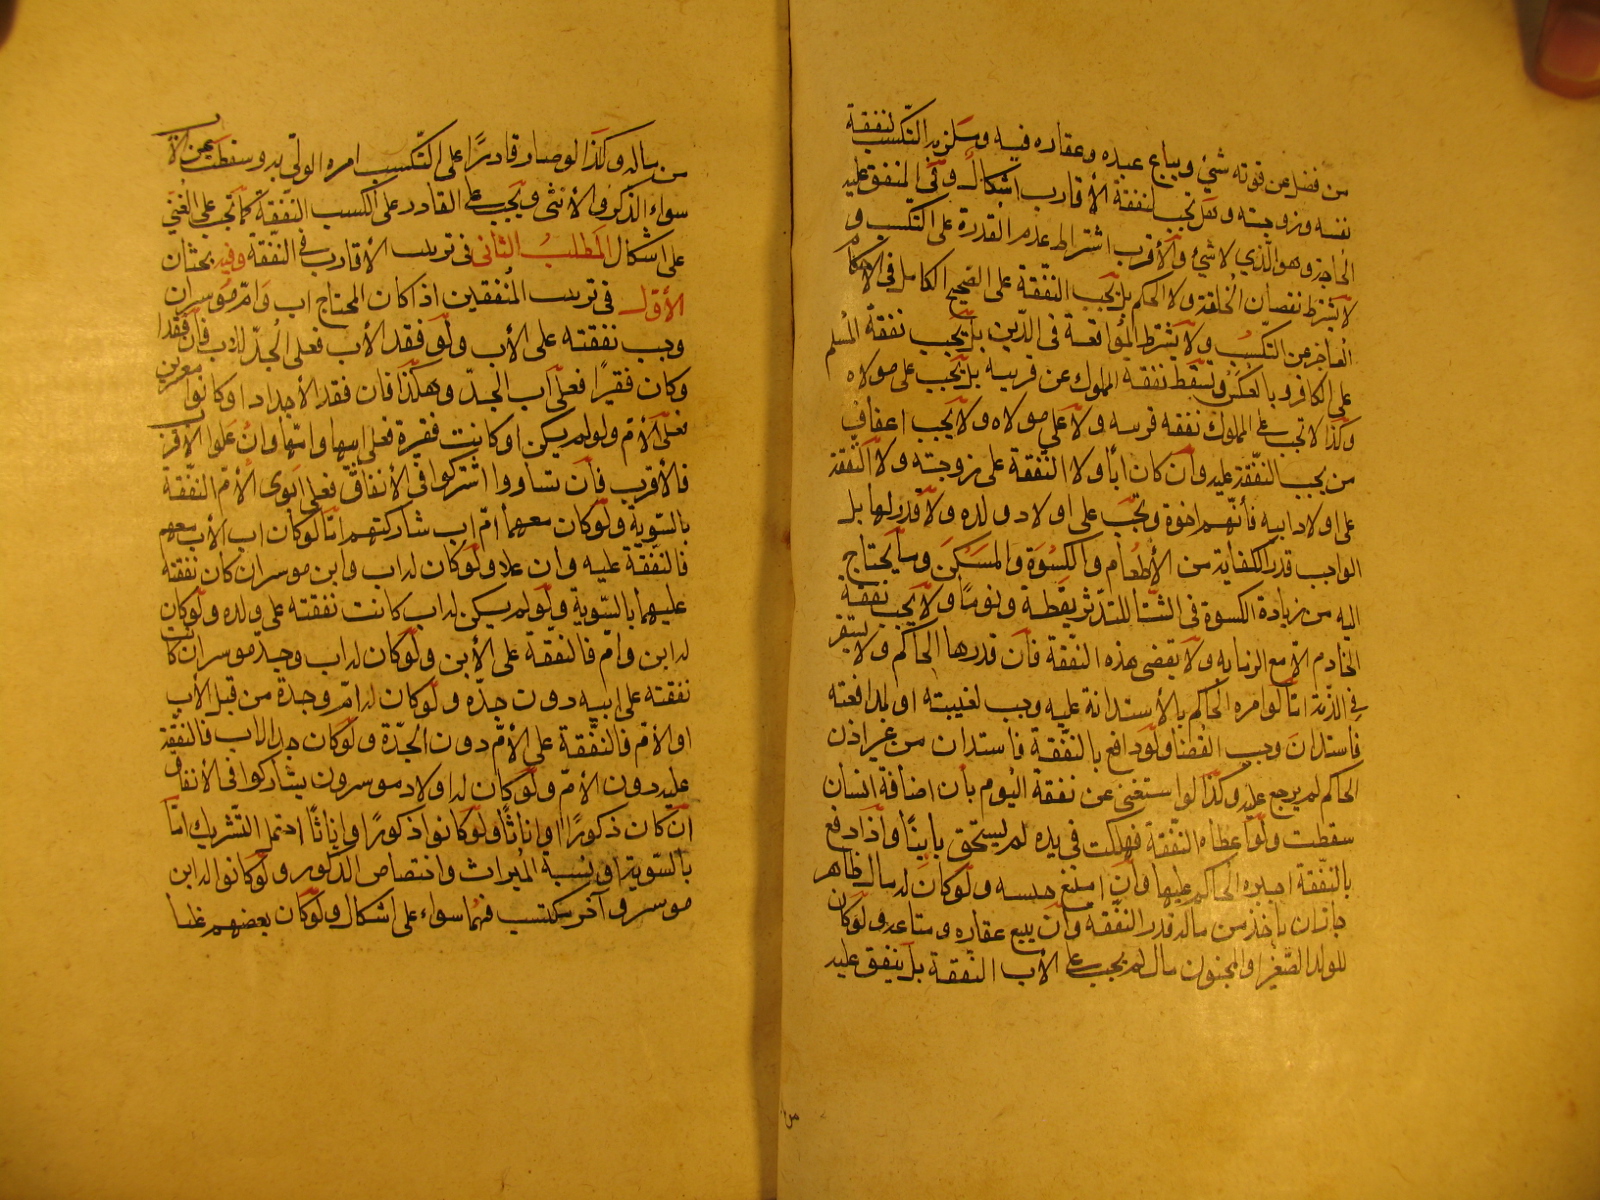 من فضل عن قوته شيء ويباع عبده وعقاره فيه ويلزم التكسب لنفقة
نفسه وزوجته وهل يجب لنفقة الأقارب اشكال وفى المنفق عليه
الحاجة وهو الذي لا شيء والأقرب اشتراط عدم القدرة على التكسب و
لا يشترط نقصان الخلقة ولا الحكم بل تجب النفقة على الصحيح الكامل فى الاحكام
العاجز عن التكسب ولا يشترط الموافقة فى الدين بل يجب نفقة المسلم
على الكافر وبالعكس وتسقط نفقة المملوك عن قريبه بل تجب على مولاه
وكذا لا تجب على المملوك نفقة قريبه ولا على مولاه ولا يجب اعفاف
من يجب النفقة عليه وان كان أبا ولا النفقة على زوجته ولا النفقة
على اولاد ابيه فأنهم اخوة وتجب على اولاد ولده ولا قدر لها بل
الواجب قدر الكفاية من الأطعام والكسوة والمسكن وما يحتاج
اليه من زيادة الكسوة فى الشتا للتدثر يقظة ونوما ولا يجب نفقة
الخادم الا مع الزمانة ولا يقضى هذه النفقة فان قدرها الحاكم ولا يستقر
فى الذمة امّا لو امره الحاكم بالأستدانة عليه وجب لغيبته او لمدافعته
فاستدان وجب القضا ولو دافع بالنفقة فاستدان من غير اذن
الحاكم لم يرجع عليه وكذا لو استغنى عن نفقة اليوم بأن اضافه انسان
سقطت ولو اعطاه النفقة فهلكت فى يده لم يستحق بابينا واذا دفع
بالنفقة اجبره الحاكم عليها وان امتنع حبسه ولو كان له مال ظاهر
جاز ان يأخذ من ماله قدر النفقة وان يبيع عقاره ومتاعه ولو كان
للولد الصغير او المجنون مال لم يجب على الأب النفقة بل ينفق عليه
من
من ماله وكذا لو صار قادرًا على التكسب امره الولى به وسقطت عن الأب
سواء الذكر فى الأنثى ويجب على القادر على الكسب النفقة كما تجب على الغنى
على اشكال المطلب الثانى فى ترتيب الأقارب فى النفقة وفيه بحثان
الأوّل فى ترتيب المنفقين اذا كان المحتاج اب وام موسران
وجب نفقته على الأب ولو فقد الأب فعلى الجد للاب فان فقد
وكان فقيرًا فعلى اب الجد وهكذا فان فقد الأجداد او كانوا معسرين
فعلى الأم ولو لم يكن او كانت فقيرة فعلى ابيها وامها وان علوا الاقرب
فالأقرب فان تساووا اشتركوا فى الأنفاق فعلى ابوى الأم النفقة
بالسوية ولو كان معهما ام اب شاركتهم امّا لو كان اب الأب معهم
فالنفقة عليه وان علا ولو كان له اب وابن موسران كان نفقته
عليهما بالسوية ولو لم يكن له اب كانت نفقته على ولده ولو كان
له ابن وام فالنفقة على الأبن ولو كان له اب وجد موسران كانت
نفقته على ابيه دون جده ولو كان له ام وجدة من قبل الأب
او الأم فالنفقة على الأم دون الجدة ولو كان جد لاب فالنفقة
عليه دون الأم ولو كان له اولاد موسرون يشاركوا فى الأنفاق
ان كان ذكورًا او اناثًا ولو كانوا ذكورًا واناثًا احتمل التشريك امّا
بالسوية او نسبة الميراث واختصاص الذكور ولو كانوا له ابن
موسر وآخر مكتسب فهما سواء على اشكال ولو كان بعضهم غنيا